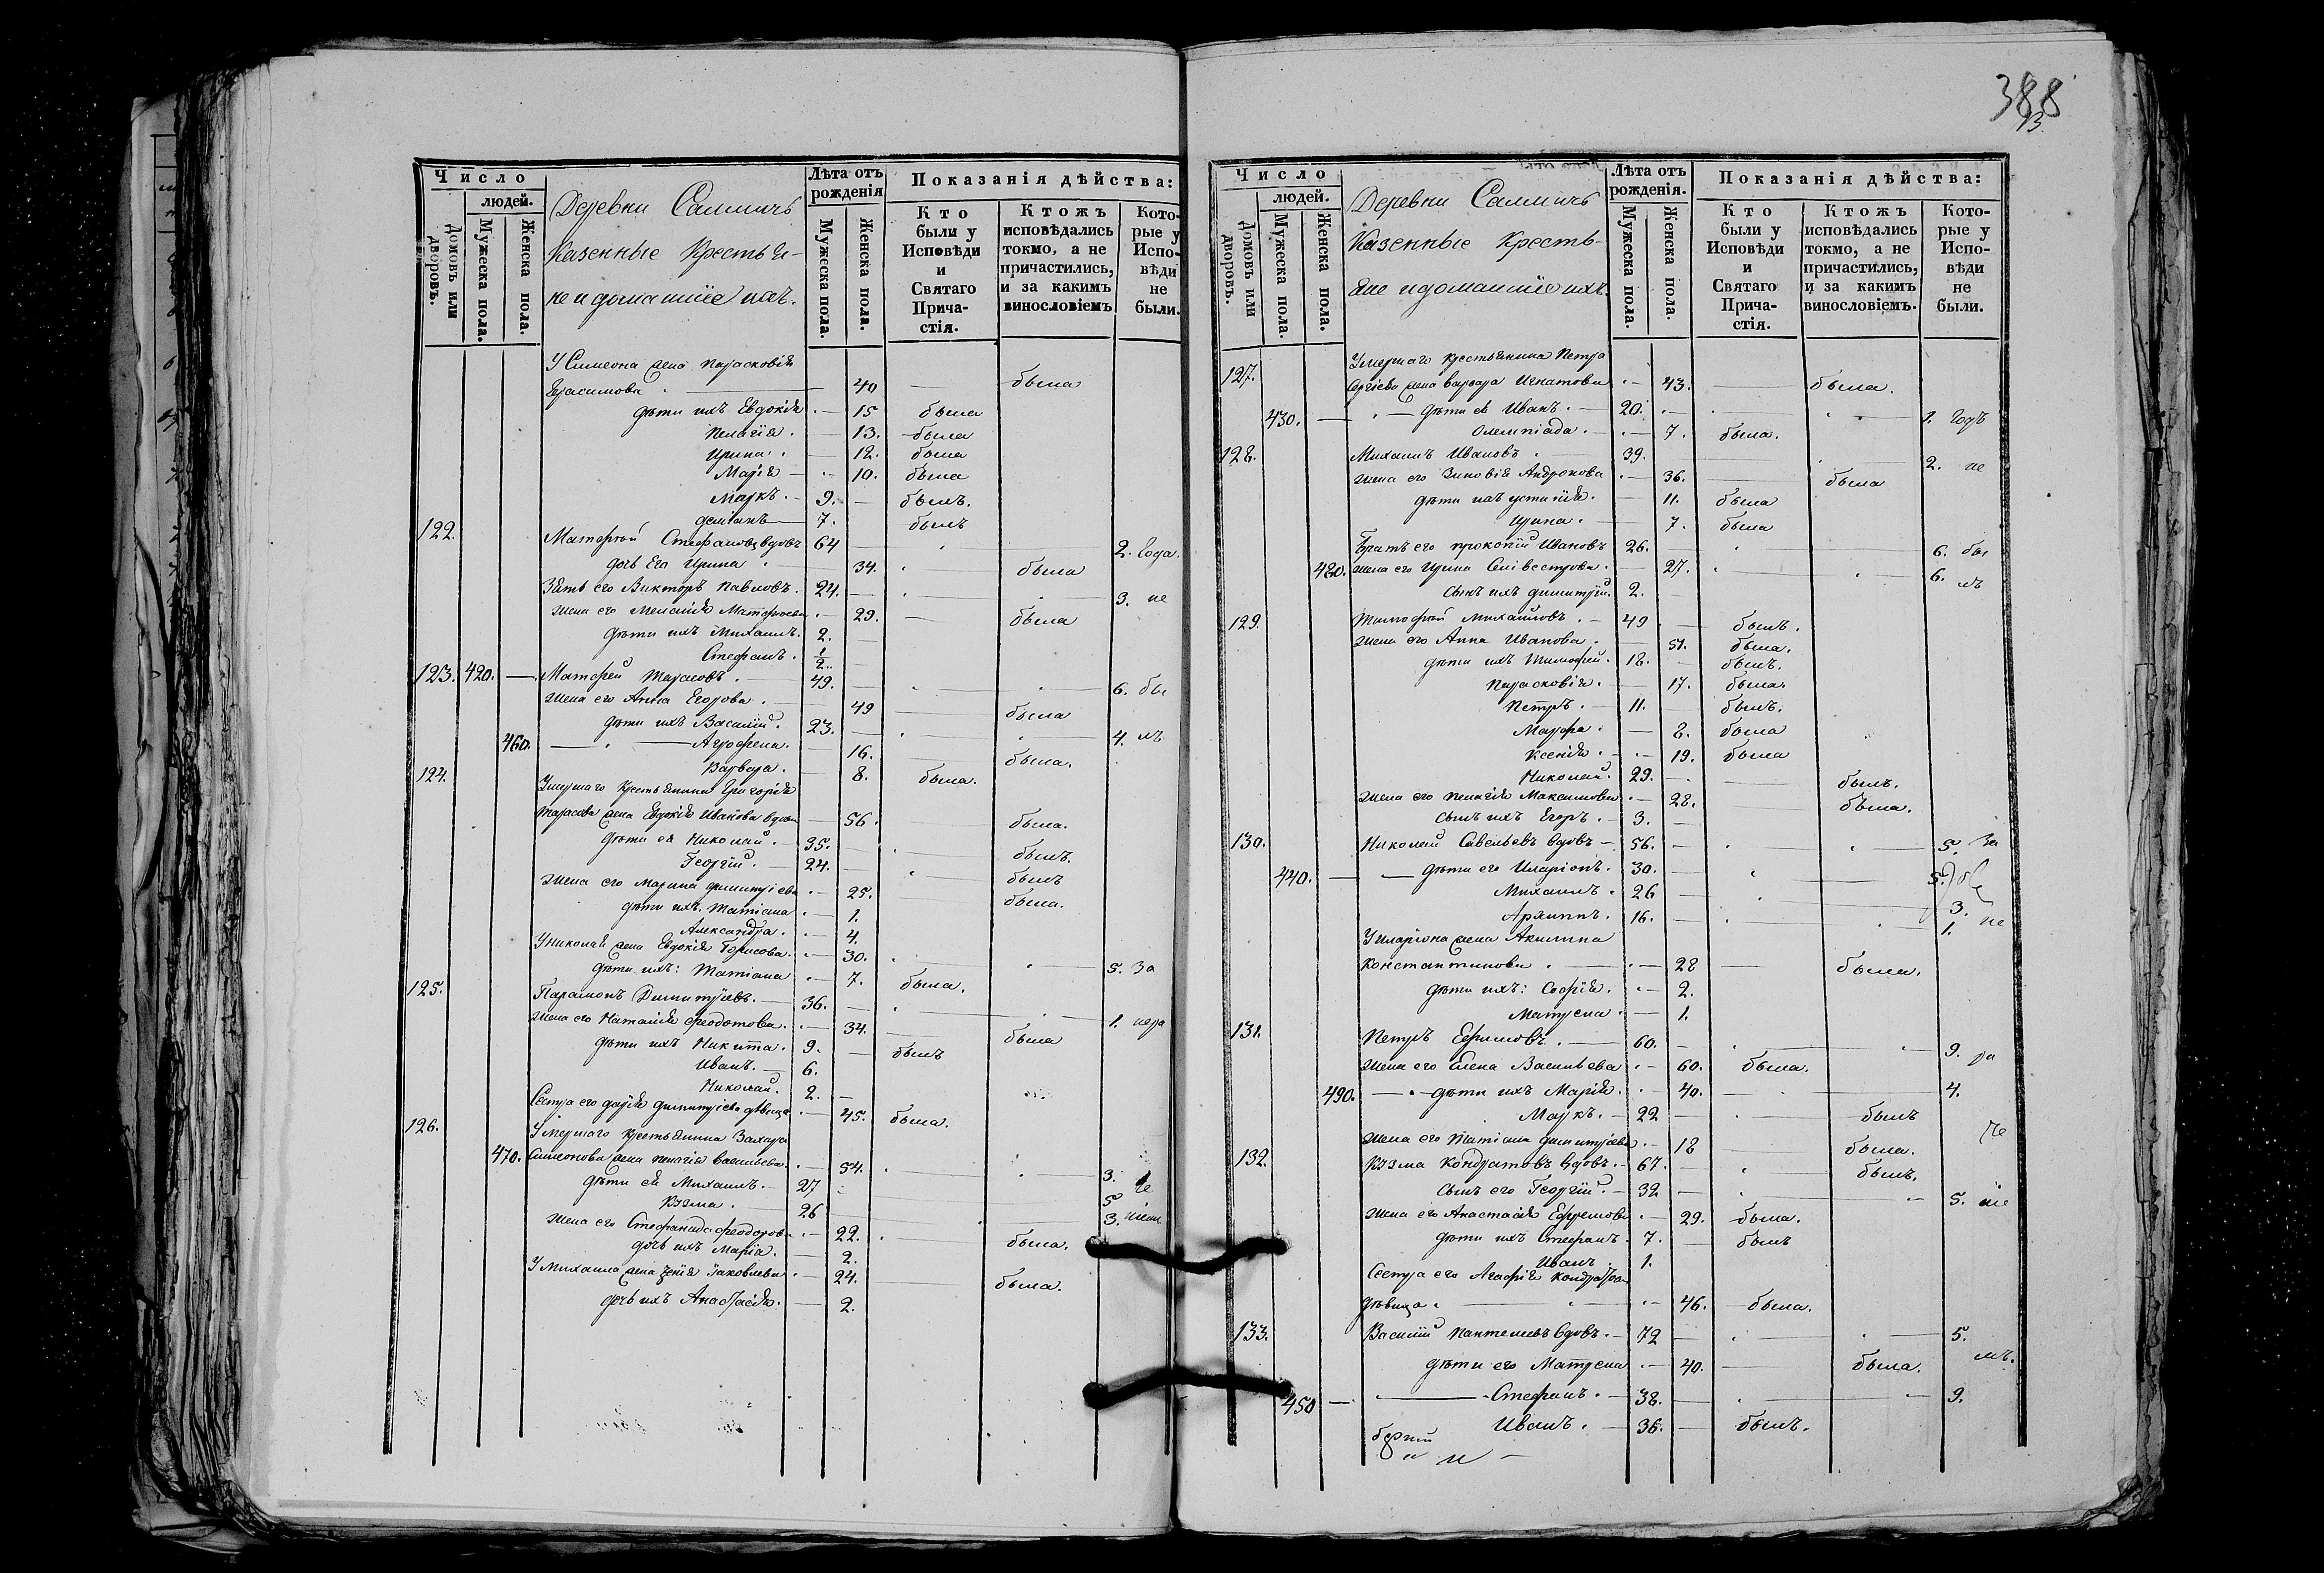 388
Число
людей.
Домовъ или дворовъ.
Мужеска пола.
Женска пола.
Деревни
Казенные Крестья-
не и домашніе ихъ.
Лѣта отъ рожденія
Мужеска пола.
Женска пола.
Показанія дѣйства:
Кто были у Исповѣди и Святаго Прича-стія.
Ктожъ исповѣдались токмо, а не причастились, и за какимъ винословіемъ
Кото-рые у Испо-вѣди не были.
У Симеона жена Парасковія
Герасимова 40 была
дѣти ихъ Евдокія 15 была
Пелагія. 13. была
Ирина. 12. была
Марія 10. была
Маркъ. 9. былъ.
Деміанъ 7. былъ
122. Матѳей Стефановъ вдовъ 64 2. Года.
дочь Его Ирина 34. была
Зять его Викторъ Павловъ. 24. 3. не
жена его Меланія Матѳеева 29. была
дѣти ихъ Михаилъ. 2.
Стефанъ. 1/2.
123. 420. Матѳей Тарасовъ. 49. 6. бы
жена его Анна Егорова. 49 была
дѣти ихъ Василій. 23. 4. лъ
460. Агрофена. 16. была.
Варвара. 8. была.
124. Умершаго Крестьянина Григорія
Тарасова жена Евдокія Иванова вдова 56. была.
дѣти ея Николай. 35. былъ.
Георгій. 24. былъ
жена его Марина Димитріева 25. была.
дѣти ихъ. Татіана 1.
Александра. 4.
У Николая жена Евдокія Борисова. 30. 5. За
дѣти ихъ: Татіана 7. была.
125. Парамонъ Димитріевъ. 36. 1. нера
жена его Наталія Ѳеодотова. 34. была
дѣти ихъ Никита. 9. былъ
Иванъ. 6.
Николай. 2.
Сестра его Дарія Димитріева дѣвица 45. была.
126. Умершаго крестьянина Захара
470. Симеонова жена Пелагія Васильева. 54. 3. че
дѣти ея Михаилъ. 27 5
Козма. 26 3. ніем
жена его Стефанида Ѳеодорова 22. была.
дочь ихъ Марія. 2.
У Михаила жена Зенія Іаковлева 24. была.
дочь ихъ Анастасія. 2.
Число
людей.
Домовъ или дворовъ.
Мужеска пола.
Женска пола.
Деревни
Казенные Кресть-
яне и домашніе ихъ.
Лѣта отъ рожденія.
Мужеска пола.
Женска пола.
Показанія дѣйства:
Кто были у Исповѣди и Святаго Прича-стія.
Ктожъ исповѣдались токмо, а не причастились, и за какимъ винословіемъ.
Кото-рые у Испо-вѣди не были.
127. Умершаго крестьянина Петра
Сергіева жена Варвара Игнатова 43. была.
430. дѣти ея Иванъ. 20. 1. Годъ
Олемпіада. 7. была.
128. Михаилъ Ивановъ 39. 2. не
жена его Зиновія Андронова 36. была
дѣти ихъ Устинія. 11. была
Ирина. 7. была
Братъ его Прокопій Ивановъ 26. 6. бы
480. жена его Ирина Силвестрова. 27. 6. лъ
сынъ ихъ Димитрій. 2.
129. Тимофей Михайловъ. 49 былъ.
жена его Анна Иванова. 51. была.
дѣти ихъ Тимофей. 18. былъ.
Парасковія. 17. была.
Петръ. 11. былъ.
Марфа. 8. была
Ксенія. 19. была
Николай. 29. былъ.
жена его Пелагія Максимова 28. была.
сынъ ихъ Егоръ. 3.
130. Николай Савельевъ вдовъ 56. 5. За
440. дѣти его Иларіонъ. 30. 5.
Михаилъ. 26 3.
Архиппъ. 16. 1. не
У Иларіона жена Акилина
Константинова. 28 была.
дѣти ихъ: Софія. 2.
Матрена. 1.
131. Петръ Ефимовъ. 60. 9. ра
жена его Елена Васильева 60. была.
490. дѣти ихъ Марія. 40. 4.
Маркъ. 22 былъ
жена его Татіана Димитріева. 18 была. че
132. Козма Кондратовъ вдовъ. 67. былъ.
сынъ его Георгій. 32 5. ніе
жена его Анастасія Ефремова 29. была.
дѣти ихъ Стефанъ. 7. былъ
Иванъ 1.
Сестра его Агафія Кондратова
дѣвица. 46. была.
133. Василій Пантелеевъ вдовъ. 72 5.
дѣти его Матрена 40. была. мъ.
450 Стефанъ. 38. 9.
Иванъ. 36. былъ.